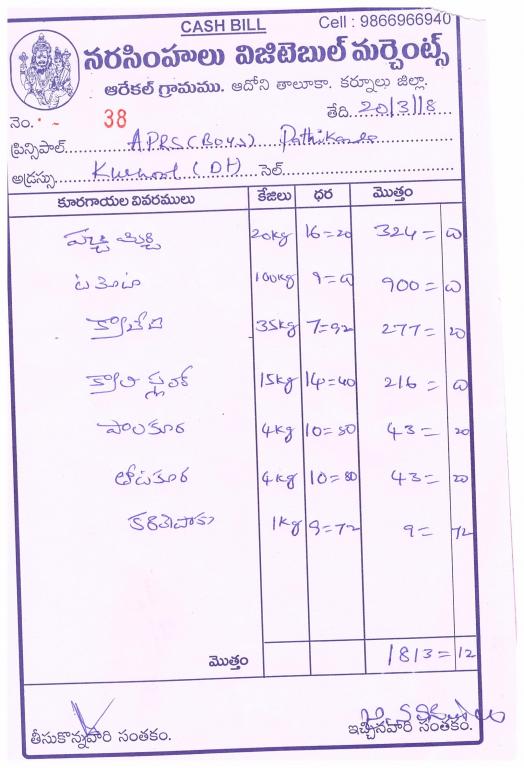 CASH BILL Cell : 9866966940
నరసింహులు విజిటెబుల్ మర్చెంట్స్
ఆరేకల్ గ్రామము. ఆదోని తాలూకా. కర్నూలు జిల్లా.
నెం. 38 తేది. 20/3/18
ప్రిన్సిపాల్. APRS(Boys) Pathikonda
అడ్రస్సు. Kurnool (Dt) సెల్.
కూరగాయల వివరములు కేజిలు ధర మొత్తం
పచ్చి మిర్చి 20kg 16=20 324= 00
టమోటా 100kg 9=00 900= 00
క్యాబేజి 35kg 7=92 277= 20
క్యాలి ఫ్లవర్ 15kg 14=40 216= 00
పాలకూర 4kg 10=80 43= 20
తోటకూర 4kg 10=80 43= 20
కరివేపాకు 1kg 9=72 9= 72
మొత్తం 1813= 12
తీసుకొన్నవారి సంతకం. ఇచ్చినవారి సంతకం.